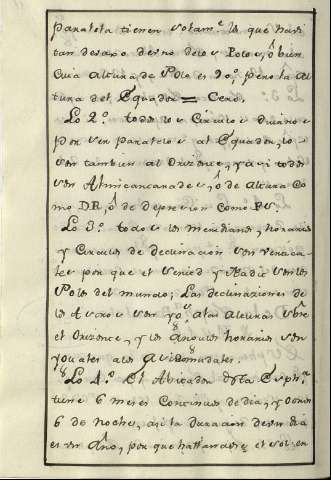 paralela tienen solam.te los que havi
tan devajo de uno de los Polos, ô bien
cuia altura de Polo es 90.º, pero la Al
tura del Equador = Cero.
Lo 2.º todos los Circulos diurnos
por ser paralelos al Equador, lo
son tambien al Orizonte, y asi todos
son Almicancarades, ô de altura Co
mo DR, ô de depresion como PS.
Lo 3.º todos los meridianos, horarios
y Circulos de declinacion son vertica-
les por que el Senid y Nadir son los
Polos del mundo; Las declinaciones de
los Astros son yg.s a las alturas sôre
el Orizonte, y los Angulos horarios son
yguales a los Azimudales.
Lo 4.º El Abitador desta Esph.ra
tiene 6 meses Continuos de dia, y otros
6 de noche, asi la duracion de un dia
es un Año, por que hallandose el sol en